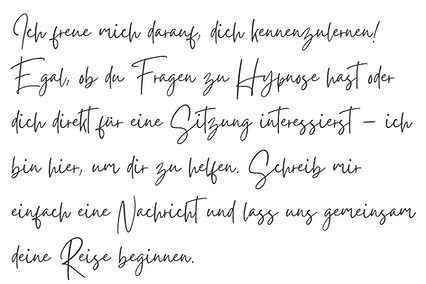 Ich freue mich darauf, dich kennenzulernen!
Egal, ob du Fragen zu Hypnose hast oder
dich direkt für eine Sitzung interessierst – ich
bin hier, um dir zu helfen. Schreib mir
einfach eine Nachricht und lass uns gemeinsam
deine Reise beginnen.